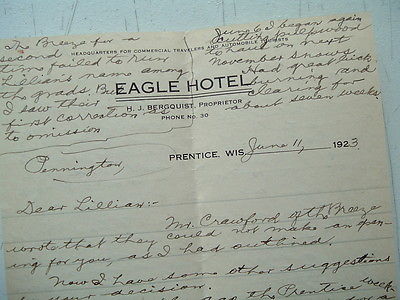 The Breeze for a
second
time failed to run
Lillian's name among
the grads. But
I saw their
first correction as
to omission
June 6 I began again
cutting pulpwood
to haul on next
November snows.
Had great luck
burning and
clearing for
about seven weeks.
HEADQUARTERS FOR COMMERCIAL TRAVELERS AND AUTOMOBILE TOURISTS
EAGLE HOTEL
H. J. BERGQUIST, PROPRIETOR
PHONE NO. 30
Pennington,
PRENTICE, WIS. June 11, 1923
Dear Lillian:-
Mr. Crawford of the Breeze
wrote that they could not make an open-
ing for you, as I had outlined.
Now I have some other suggestions
your decision.
the Prentice week-
for a